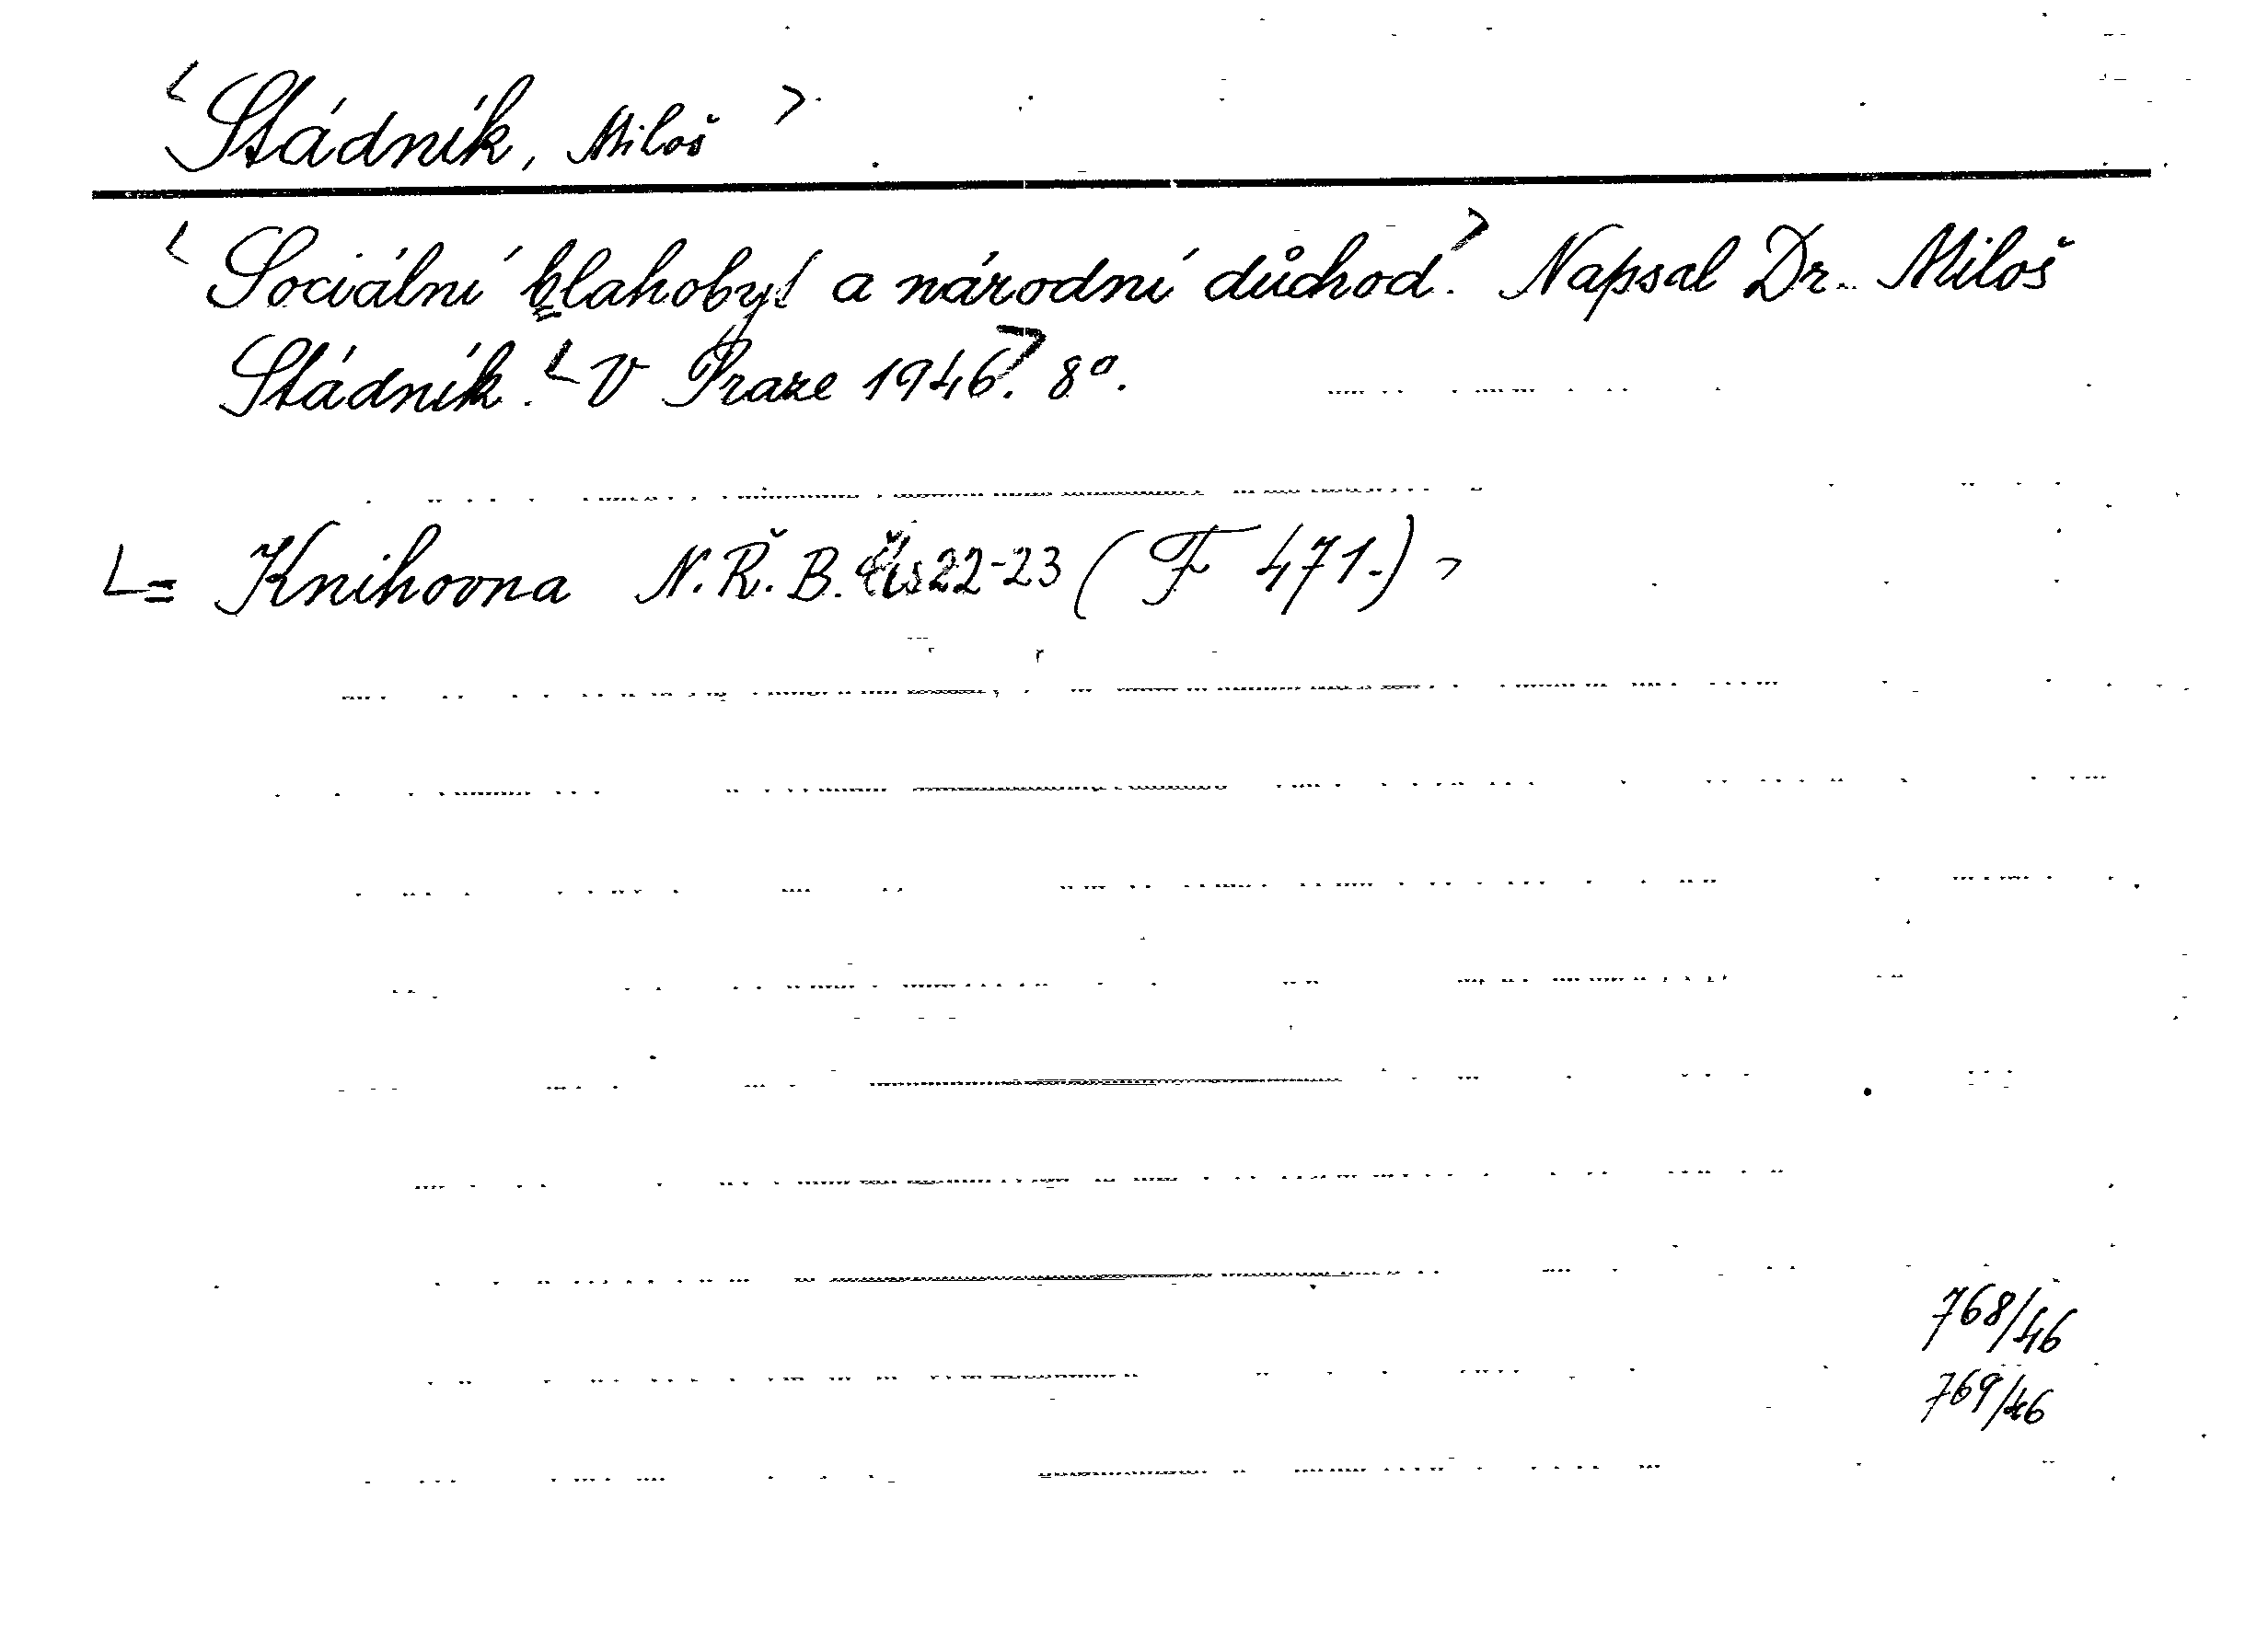 Stádník, Miloš
Sociální blahobyt a národní důchod. Napsal Dr. Miloš
Stádník. V Praze 1946. 8°.
= Knihovna N. Ř. B. čís 22-23 (F 471.)
768/46
769/46